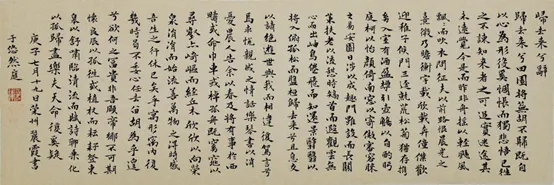 歸去來兮辭
歸去來兮田園將蕪胡不歸既自
以心為形役奚惆悵而獨悲悟已往
之不諫知來者之可追實迷途其
未遠覺今是而昨非舟搖以輕颺風
飄而吹衣問征夫以前路恨晨光之
熹微乃瞻衡宇載欣載奔僮僕歡
迎稚子候門三逕就荒松菊猶存攜
幼入室有酒盈樽引壺觴以自酌眄
庭柯以怡顏倚南窗以寄傲審容膝
之易安園日涉以成趣門雖設而長關
策扶老以流憩時矯首而遐觀雲無
心而出岫鳥倦飛而知還景翳翳以
將入撫孤松而盤桓歸去來兮息交
以絕遊世與我而相違復駕言兮
焉求悅親戚之情話樂琴書以消
憂農人告余以春及將有事於西
疇或命巾車或棹孤舟既窈窕以
尋壑亦崎嶇而經丘木欣欣以向榮
泉涓涓而始流善萬物之得時感
吾生之行休已矣乎寓形宇內復
幾時曷不委心任去留胡為乎遑
兮欲何之富貴非吾願帝鄉不可期
懷良辰以孤往或植杖而耘耔登東
皋以舒嘯臨清流而賦詩聊乘化
以歸盡樂夫天命復奚疑
庚子七月十九日榮州晨霞書
于悠然庭